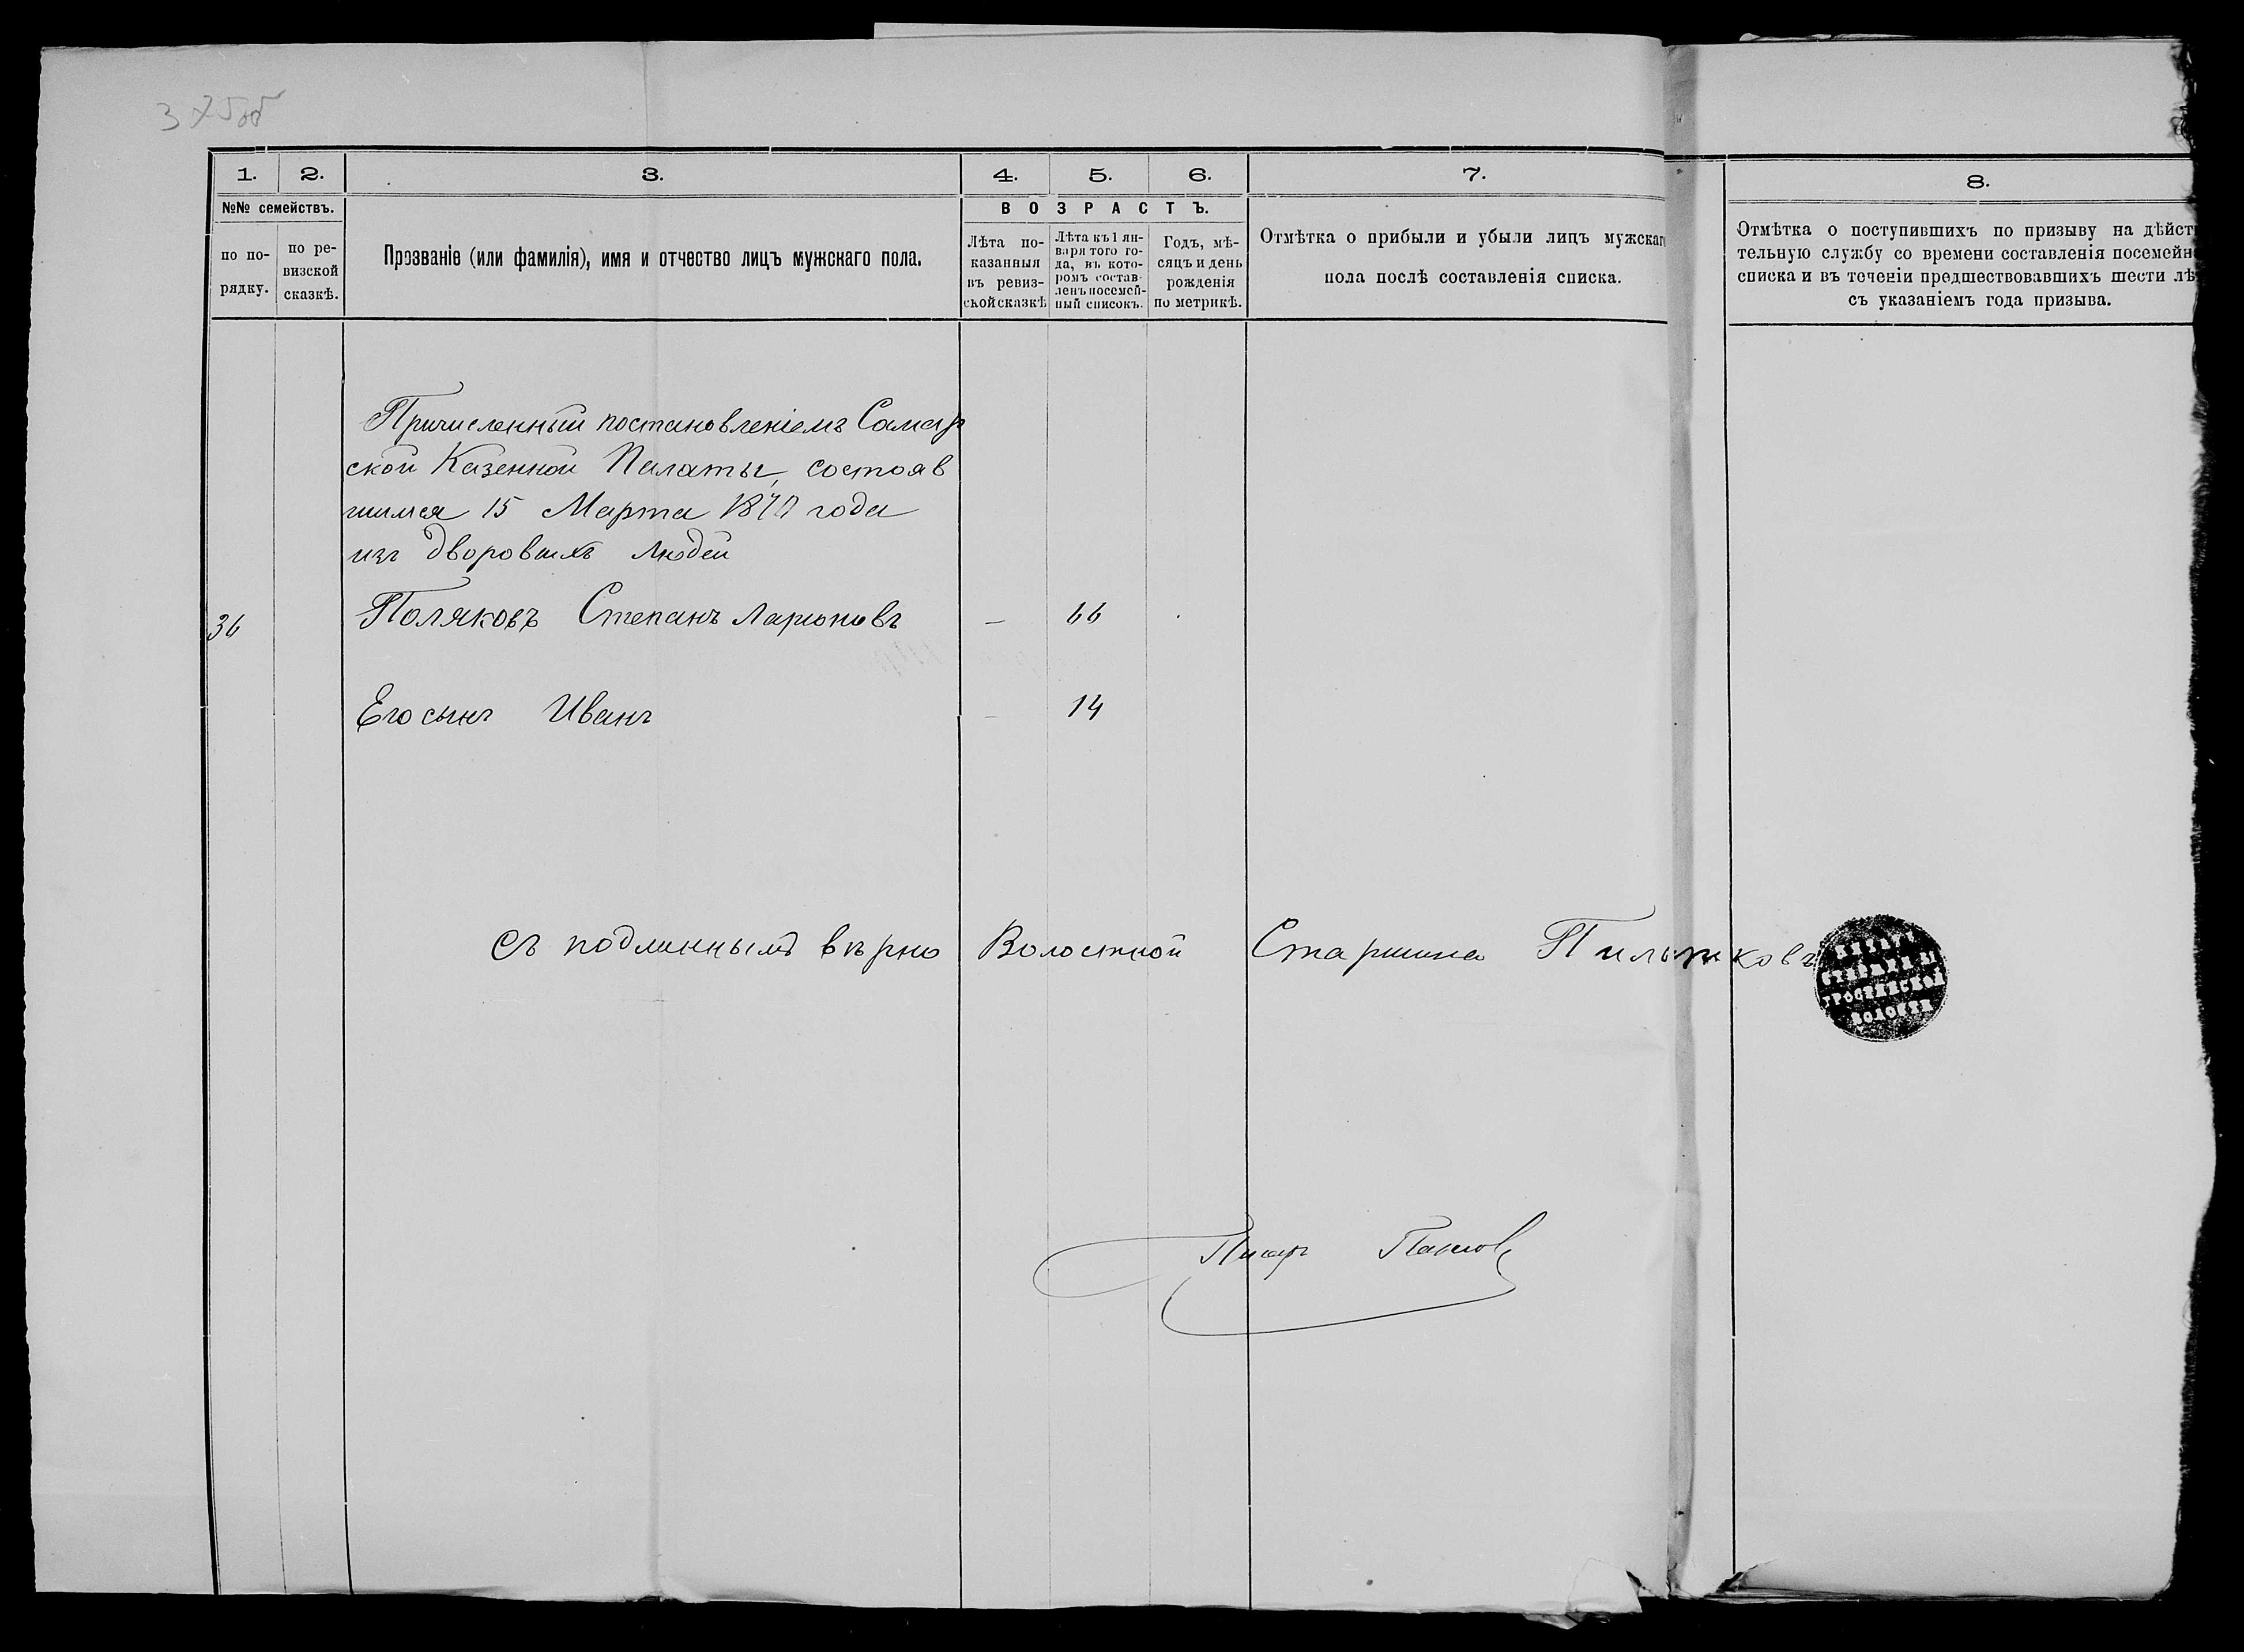 1.
2.
3.
4.
5.
6.
7.
8.
№№ семействъ.
по по-
рядку.
по ре-
визской
сказкѣ.
Прозваніе (или фамилія), имя и отчество лицъ мужскаго пола.
ВОЗРАСТЪ.
Лѣта по-
казанныя
въ ревиз-
ской сказкѣ
Лѣта къ 1 ян-
варя того го-
да, въ кото-
ромъ состав-
ленъ посемей-
ный списокъ.
Годъ, мѣ-
сяцъ и день
рожденія
по метрикѣ.
Отмѣтка о прибыли и убыли лицъ мужскаго
пола послѣ составленія списка.
Отмѣтка о поступившихъ по призыву на дѣйст
тельную службу со времени составленія посемейн
списка и въ теченіи предшествовавшихъ шести лѣ
съ указаніемъ года призыва.
Причисленный постановленіемъ Самар
ской Казенной Палаты, состояв
шимся 15 Марта года
изъ дворовыхъ людей
36 Поляковъ Степанъ Ларионовъ — 66
Его сынъ Иванъ — 14
Съ подлиннымъ вѣрно Волостной Старшина
СТАРШИНЫ
ТРОСТЯНСКОЙ
ВОЛОСТИ
Писарь